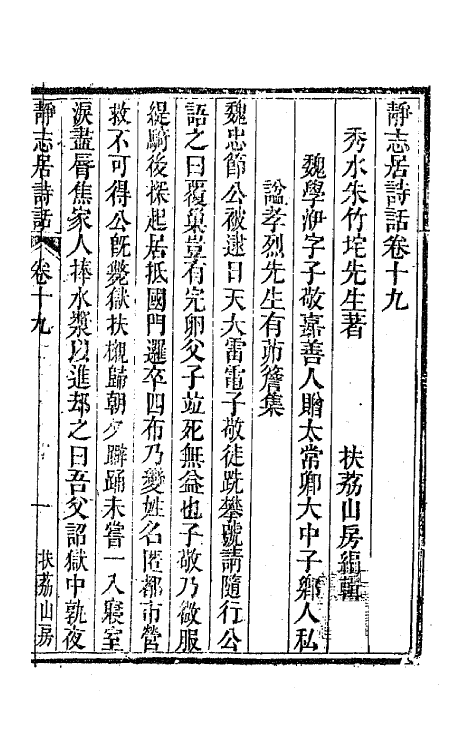 靜志居詩話卷十九
秀水朱竹垞先生著　扶荔山房編輯
魏學洢字子敬嘉善人贈太常卿大中子鄉人私
諡孝烈先生有茆簷集
魏忠節公被逮日天大雷電子敬徒跣攀號請隨行公
語之曰覆巢豈有完卵父子竝死無益也子敬乃微服
緹騎後探起居抵國門邏卒四布乃變姓名匿都市營
救不可得公旣斃獄扶櫬歸朝夕擗踊未嘗一入寢室
淚盡脣焦家人捧水漿以進却之曰吾父詔獄中孰夜
靜志居詩話　卷十九　一　扶荔山房